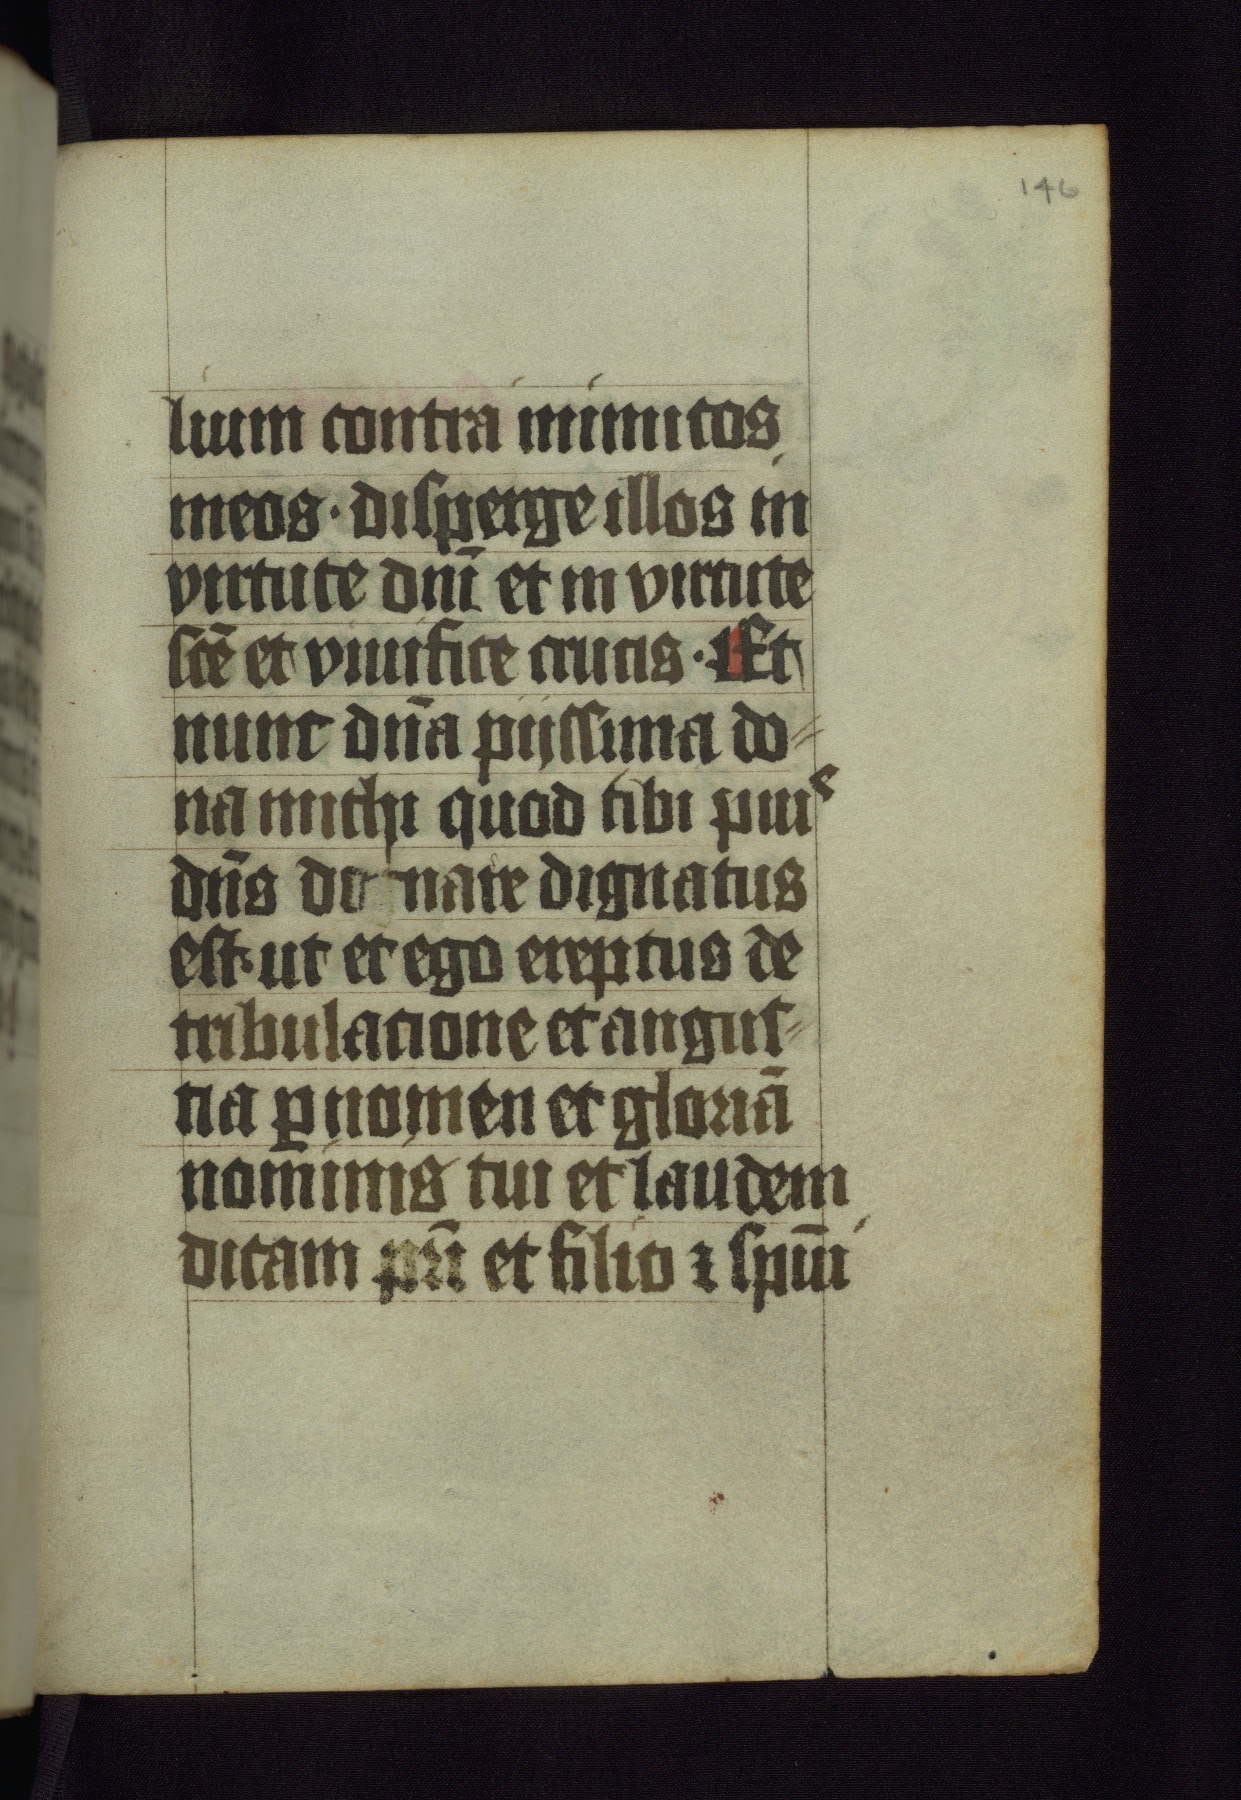 146
lium contra inimicos
meos · disperge illos in
virtute dnī et in virtute
scē et viuifice crucis · Et
nunc dn̄a pijssima do⸗
na michi quod tibi puiˢ
dn̄s do nare dignatus
est· ut et ego ereptus de
tribulacione et angus⸗
tia ꝑ nomen et gloriā
nominis tui et laudem
dicam pr̄i et filio ⁊ spūi